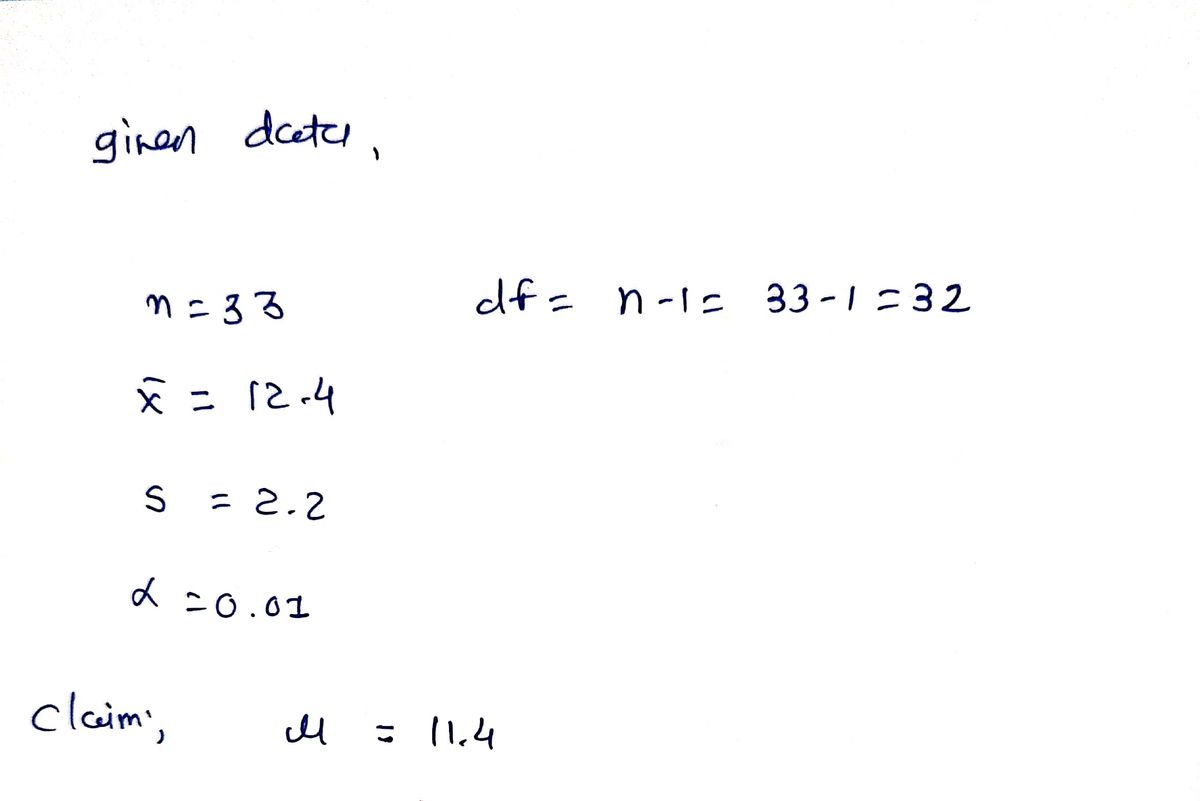 given data,
n = 33 df = n-1 = 33-1 = 32
x̄ = 12.4
S = 2.2
α = 0.01
Claim:, μ = 11.4